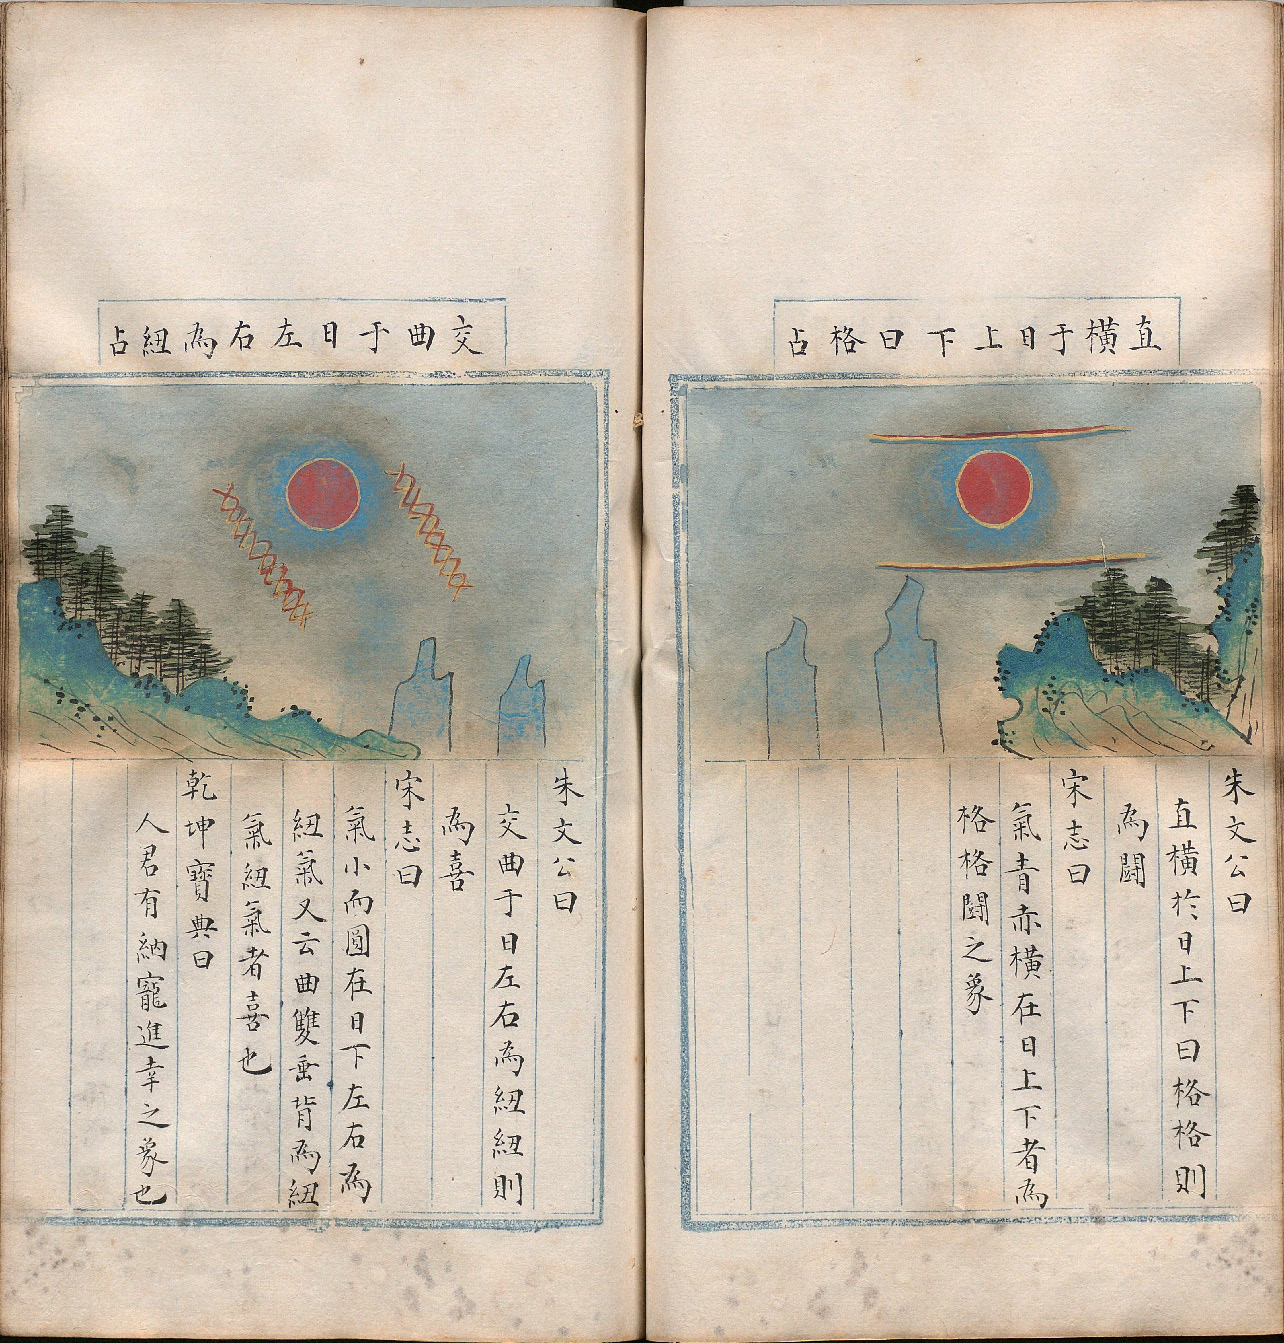 直橫于日上下曰格占
朱文公曰
直橫於日上下曰格格則
為鬪
宋志曰
氣青赤橫在日上下者為
格格鬪之象
交曲于日左右為紐占
朱文公曰
交曲于日左右為紐紐則
為喜
宋志曰
氣小而圓在日下左右為
紐氣又云曲雙垂背為紐
氣紐氣者喜也
乾坤寶典曰
人君有納寵進幸之象也